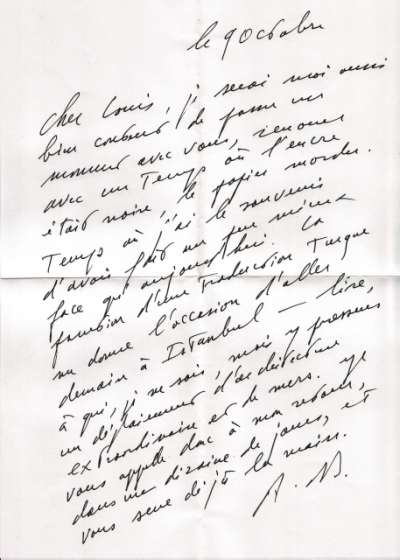 le 9 Octobre
Cher Louis, je serai moi aussi
bien content de passer un
moment avec vous, renouer
avec un Temps où l'encre
était noire, le papier mordu.
Temps où j'ai le souvenir
d'avoir fait un peu mieux
face qu'aujourd'hui. La
d'une Traduction Turque
me donne l'occasion d'aller
demain à Istanbul — lire,
à qui, je ne sais, mais y
un d'architecture
extraordinaire et de mers. Je
vous appelle donc à mon retour,
dans une dizaine de jours, et
vous serre déjà la main.
A. B.